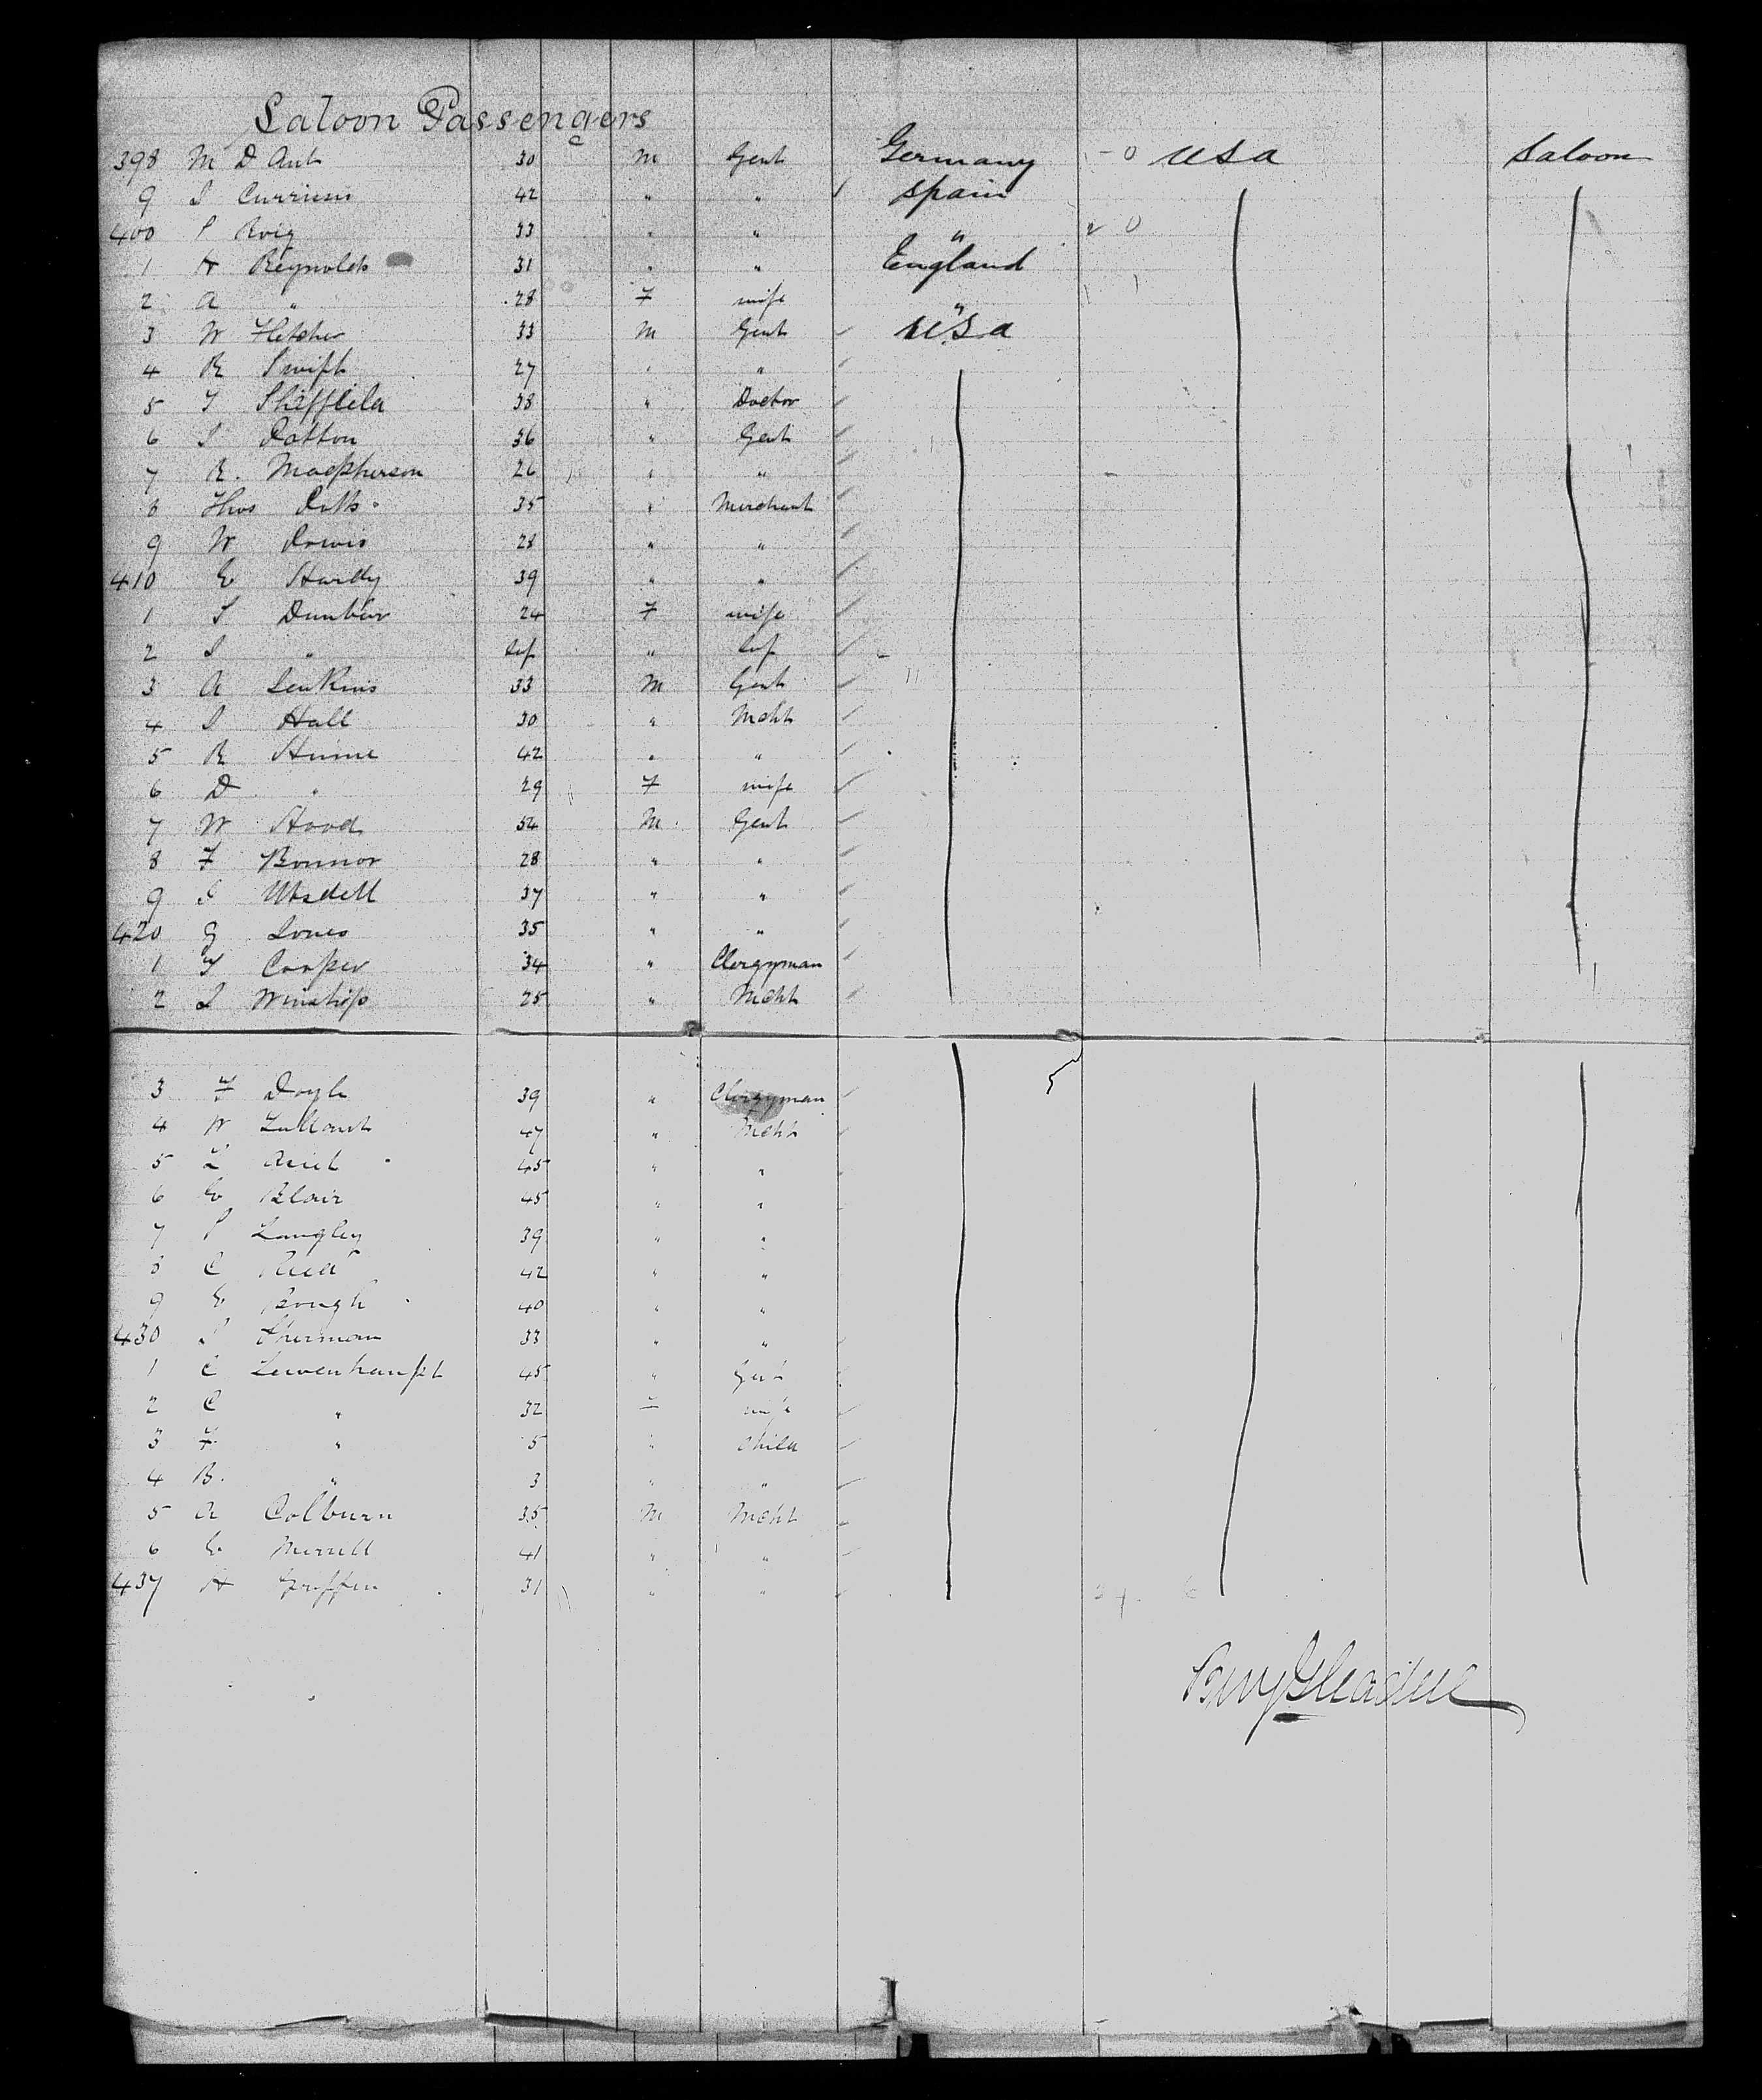 Saloon Passengers
398 M D Ant 30 M Gent Germany USA Saloon
9 J 42 " " Spain
400 P Roig 33 " " "
1 H Reynolds 31 " " England
2 A " 28 F wife "
3 W Fletcher 33 M Gent USA
4 R Swift 27 " "
5 T 38 " Doctor
6 J 36 " Gent
7 R. Macpherson 26 " "
8 Thos 35 " Merchant
9 W 28 " "
410 E Hardy 39 " "
1 S Dunbar 24 F wife
2 J " Inf " Inf
3 A Jenkins 33 M Gent
4 J Hall 30 " Mcht
5 R Hume 42 " "
6 D " 29 F wife
7 W Hood 54 M Gent
8 F Bonnor 28 " "
9 J 37 " "
420 G Jones 35 " "
1 T Cooper 34 " Clergyman
2 J Winship 25 " Mcht
3 F Doyle 39 " Clergyman
4 W 47 " Mcht
5 45 " "
6 E Blair 45 " "
7 P Langley 39 " "
8 C 42 " "
9 E Bough 40 " "
430 J Sherman 33 " "
1 C Lewenhaupt 45 " Gent
2 C " 32 F wife
3 F " 5 " Child
4 B. " 3 " "
5 A Colburn 35 M Mcht
6 E Merrill 41 " "
437 H Griffin 31 " "